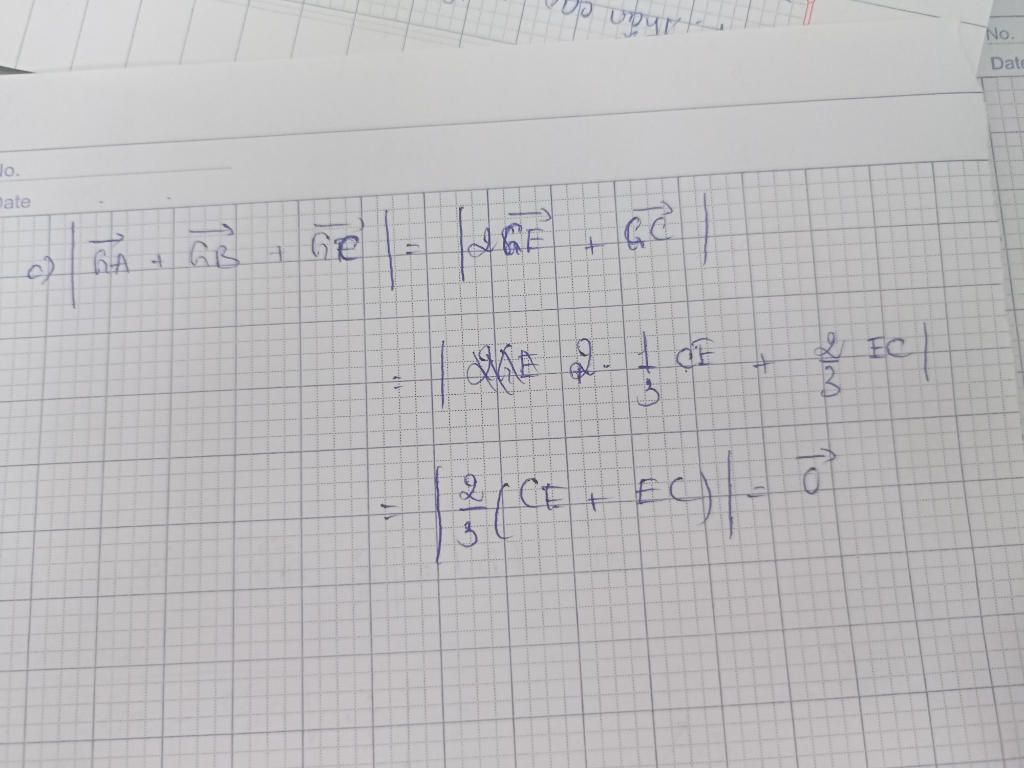 thân cao
No.
Date
No.
Date
c) |GA→ + GB→ + GC→| = |2GE→ + GC→|
= |2·1/3 CE + 2/3 EC|
= |2/3 (CE + EC)| = 0→